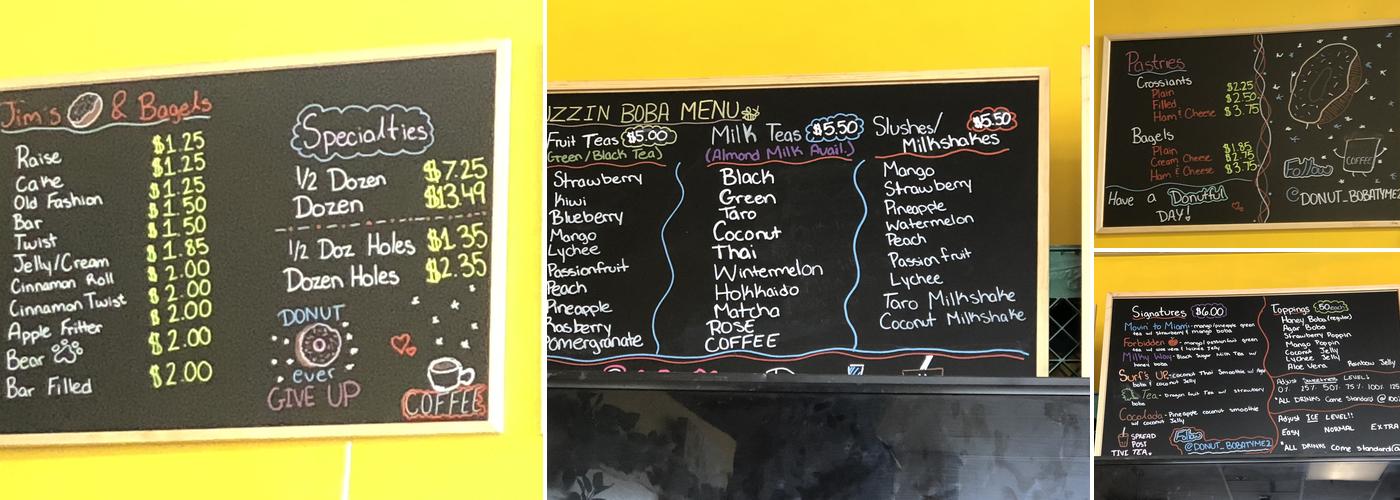 Jim's & Bagels
Raise $1.25
Cake $1.25
Old Fashion $1.25
Bar $1.50
Twist $1.50
Jelly/Cream $1.85
Cinnamon Roll $2.00
Cinnamon Twist $2.00
Apple Fritter $2.00
Bear $2.00
Bar Filled $2.00
Specialties
1/2 Dozen $7.25
Dozen $13.49
1/2 Doz Holes $1.35
Dozen Holes $2.35
DONUT
ever
GIVE UP
COFFEE
UZZIN BOBA MENU
Fruit Teas $5.00
(Green/Black Tea)
Strawberry
Kiwi
Blueberry
Mango
Lychee
Passionfruit
Peach
Pineapple
Rasberry
Pomegranate
Milk Teas $5.50
(Almond Milk Avail.)
Black
Green
Taro
Coconut
Thai
Wintermelon
Hokkaido
Matcha
ROSE
COFFEE
Slushes/ $5.50
Milkshakes
Mango
Strawberry
Pineapple
Watermelon
Peach
Passionfruit
Lychee
Taro Milkshake
Coconut Milkshake
Pastries
Crossiants
Plain $2.25
Filled $2.50
Ham & Cheese $3.75
Bagels
Plain $1.85
Cream Cheese $2.75
Ham & Cheese $3.75
Have a Donutful
DAY!
COFFEE
Follow
@DONUT_BOBATYME2
Signatures $6.00
Movin' to Miami - mango/pineapple green
tea w/ strawberry & mango boba
Forbidden - mango/passionfruit green
tea w/ aloe vera & lychee Jelly
Milky Way - Black Sugar Milk Tea w/
honey boba
Surf's UP - Coconut Thai Smoothie w/ Agar
boba & coconut Jelly
Tea - Dragon fruit Tea w/ strawberry
boba
Cocolada - Pineapple coconut smoothie
w/ coconut Jelly
SPREAD
POST
TIVI TEA
Follow
@DONUT_BOBATYME2
Toppings .50 each
Honey Boba (regular)
Agar Boba
Strawberry Poppin
Mango Poppin
Coconut Jelly
Lychee Jelly
Aloe Vera Rainbow Jelly
Adjust Sweetness LEVEL!
0% 25% 50% 75% 100% 125
*ALL DRINKS Come Standard @ 100
Adjust ICE LEVEL!!
Easy NORMAL EXTRA
*ALL DRINKS Come standard @